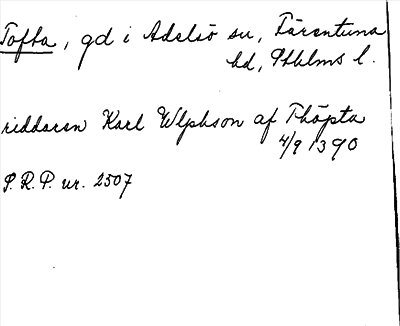 Tofta, gd i Adelsö sn, Färentuna
hd, Sthlms l.
riddaren Karl Wlphson af Thöpta
4/9 1390
P.R.P. nr. 2507